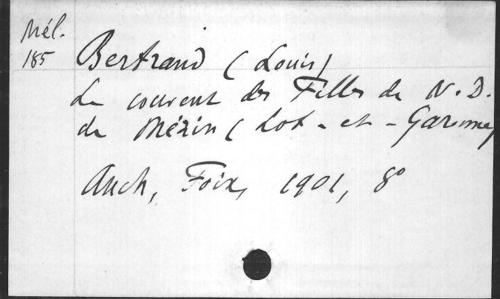 Mél.
185
Bertrand (Louis)
Le couvent des Filles de N.D.
de Mézin (Lot-et-Garonne)
Auch, Foix, 1901, 8°